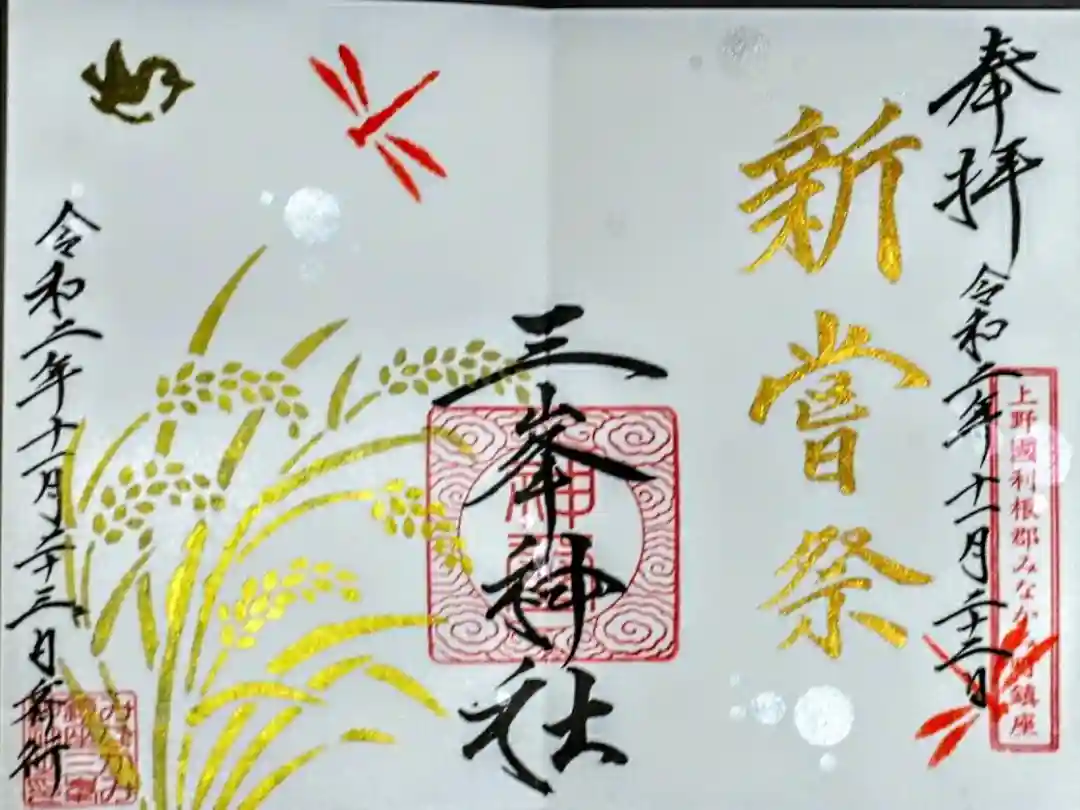 奉拝
令和二年十一月二十三日
上野國利根郡みなかみ町鎮座
新嘗祭
三峯神社
令和二年十一月二十三日斎行